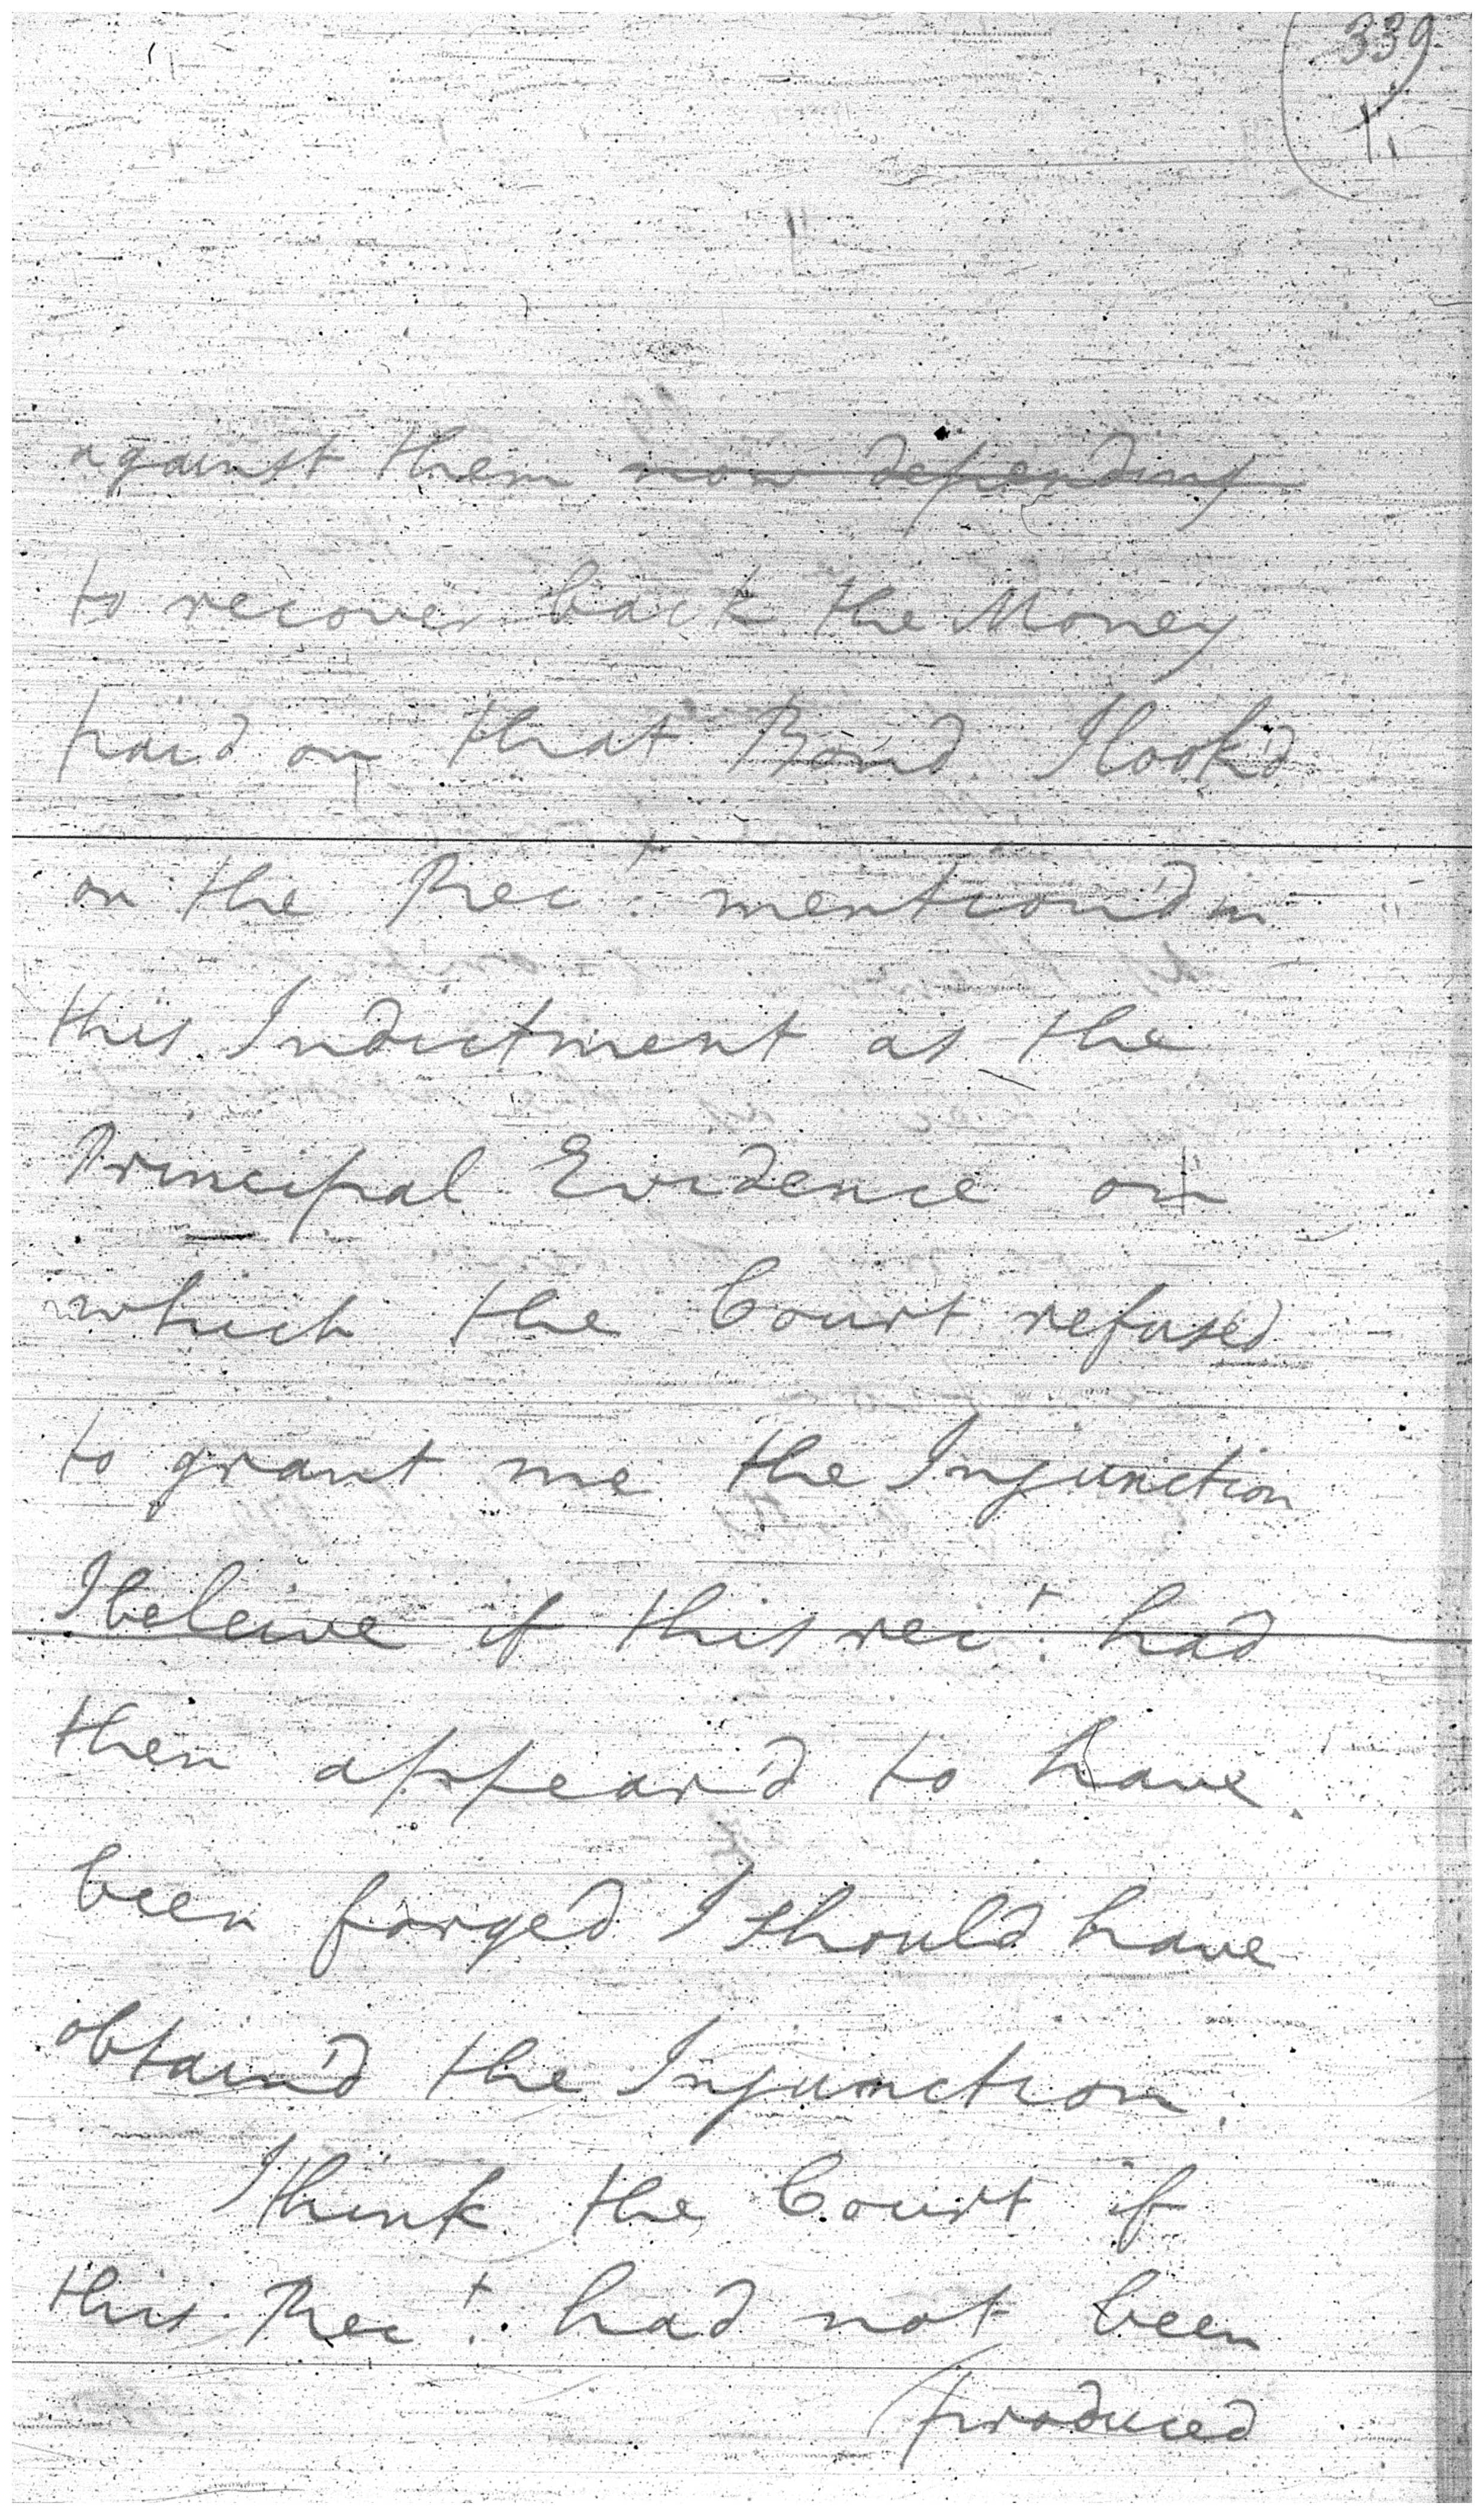 339
against them now depending
to recover back the Money
paid on that Bond. I look'd
on the Rec.t mention'd in
this Indictment as the
Principal Evidence on
which the Court refused
to grant me the Injunction
I beleive if this rec.t had
then appear'd to have
been forged I should have
obtain'd the Injunction.
I think the Court if
this Rec.t had not been
produced